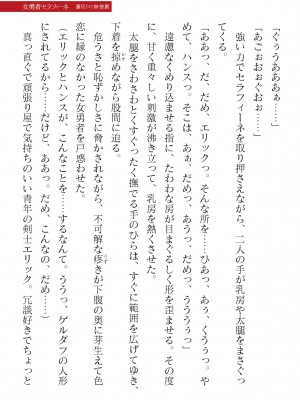 女勇者セラフィーネ 裏切りの
「ぐぅうああああ……」
「あごぉおぉぐおぉ……」
強い力でセラフィーネを取り押さえながら、二人の手が乳房や太腿をまさぐっ
てくる。
「ああっ、だ、だめ、エリックっ。そんな所を……ひあっ、あぅ、くうぅっ。や
めて、ハンスっ。そこは、あぁ、だめっ、あうっ、だめっ、うううぅっ」
遠慮なくめり込ませる指に、たわわな房が目まぐるしく形を歪ませる。その度
に、甘く重々しい刺激が沸き立って、乳房を熱くさせた。
太腿をさわさわとくすぐったく撫でる手のひらは、すぐに範囲を広げてゆき、
下着を掠めながら股間に迫る。
危うさと恥ずかしさに脅かされながら、不可解な疼きが下腹の奥に芽生えて色
恋に縁のなかった女勇者を戸惑わせた。
（エリックとハンスが、こんなことを……するなんて。ううっ、ゲルダフの人形
にされてるから……だけど、ああっ。だめ、こんなの、だめ……）
真っ直ぐで頑張り屋で気持ちのいい青年の剣士エリック。冗談好きでちょっと